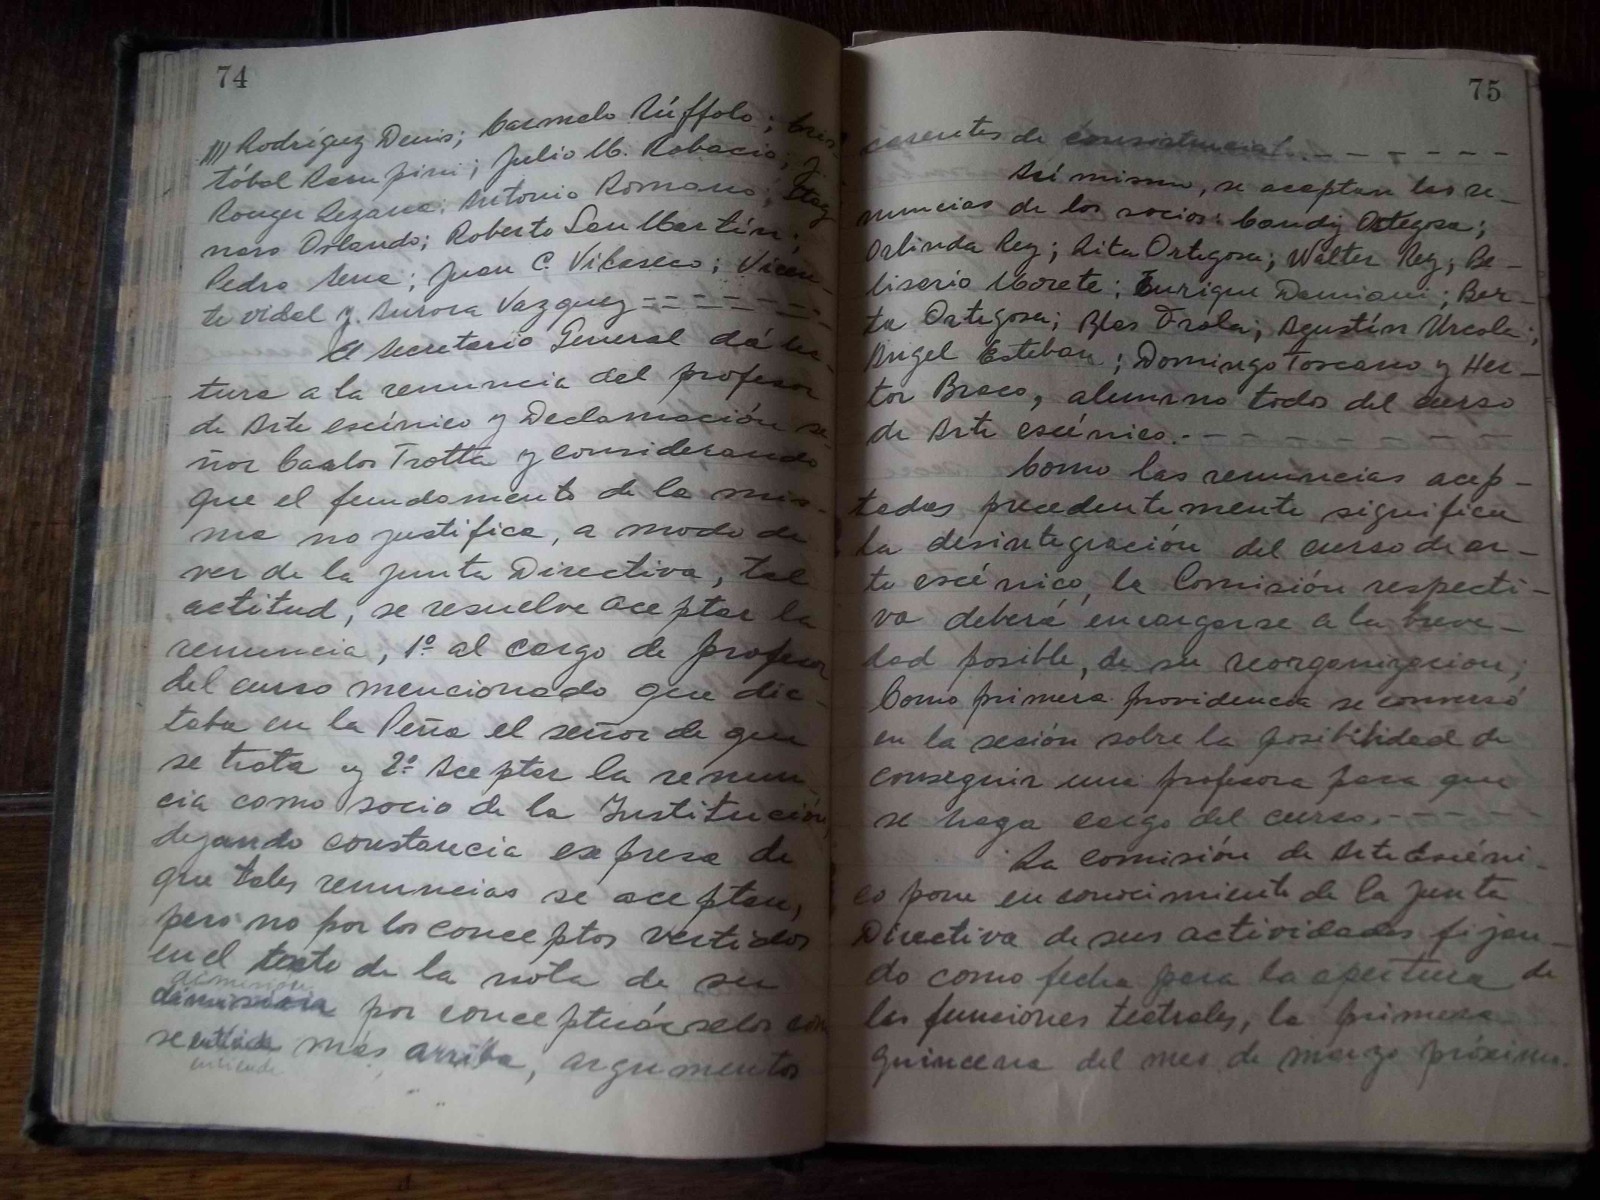 74
/// Rodríguez Denis; Carmelo Rúffolo; Cris-
tóbal Rampini; Julio M. Robacio; J.
Rouger Lezana; Antonio Romano;
naro Orlando; Roberto San Martín;
Pedro Sena; Juan C. Vilaseco; Vicen-
te vidal y Aurora Vazquez
El Secretario General dá lec-
tura a la renuncia del profesor
de Arte escénico y Declamación se-
ñor Carlos Trotta y considerando
que el fundamento de la mis-
ma no justifica, a modo de
ver de la Junta Directiva, tal
actitud, se resuelve aceptar la
renuncia, 1º al cargo de profesor
del curso mencionado que dic-
taba en la Peña el señor de que
se trata y 2º Aceptar la renun-
cia como socio de la Institución,
dejando constancia expresa de
que tales renuncias se aceptan,
pero no por los conceptos vertidos
en el texto de la nota de su
dimisión
por conceptuárselos
se entiende más arriba, argumentos
entiende
75
carentes de
Así mismo, se aceptan las re-
nuncias de los socios: Candy Ortegosa;
Orlinda Rey; Rita Ortegosa; Walter Rey; Be-
lisario Morete; Enrique Damiani; Ber-
ta Ortegosa; Blas Frola; Agustín Urcola;
Angel Esteban; Domingo Toscano y Hec-
tor Braco, alumno todos del curso
de Arte escénico.-
Como las renuncias acep-
tadas precedentemente significa
la desintegración del curso de ar-
te escénico, la Comisión respecti-
va deberá encargarse a la breve-
dad posible, de su reorganizacion;
Como primera providencia se conversó
en la sesión sobre la posibilidad de
conseguir una profesora para que
se haga cargo del curso.-
La comisión de Arte Escéni-
co pone en conocimiento de la Junta
Directiva de sus actividades fijan-
do como fecha para la apertura de
las funciones teatrales, la primera
quincena del mes de marzo próximo.